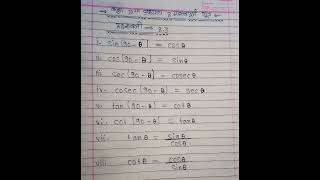 i- sin(90-θ) = cosθ
ii. cos(90-θ) = sinθ
iii. sec(90-θ) = cosecθ
iv. cosec(90-θ) = secθ
v. tan(90-θ) = cotθ
vi. cot(90-θ) = tanθ
vii. tanθ = sinθ/cosθ
viii. cotθ = cosθ/sinθ